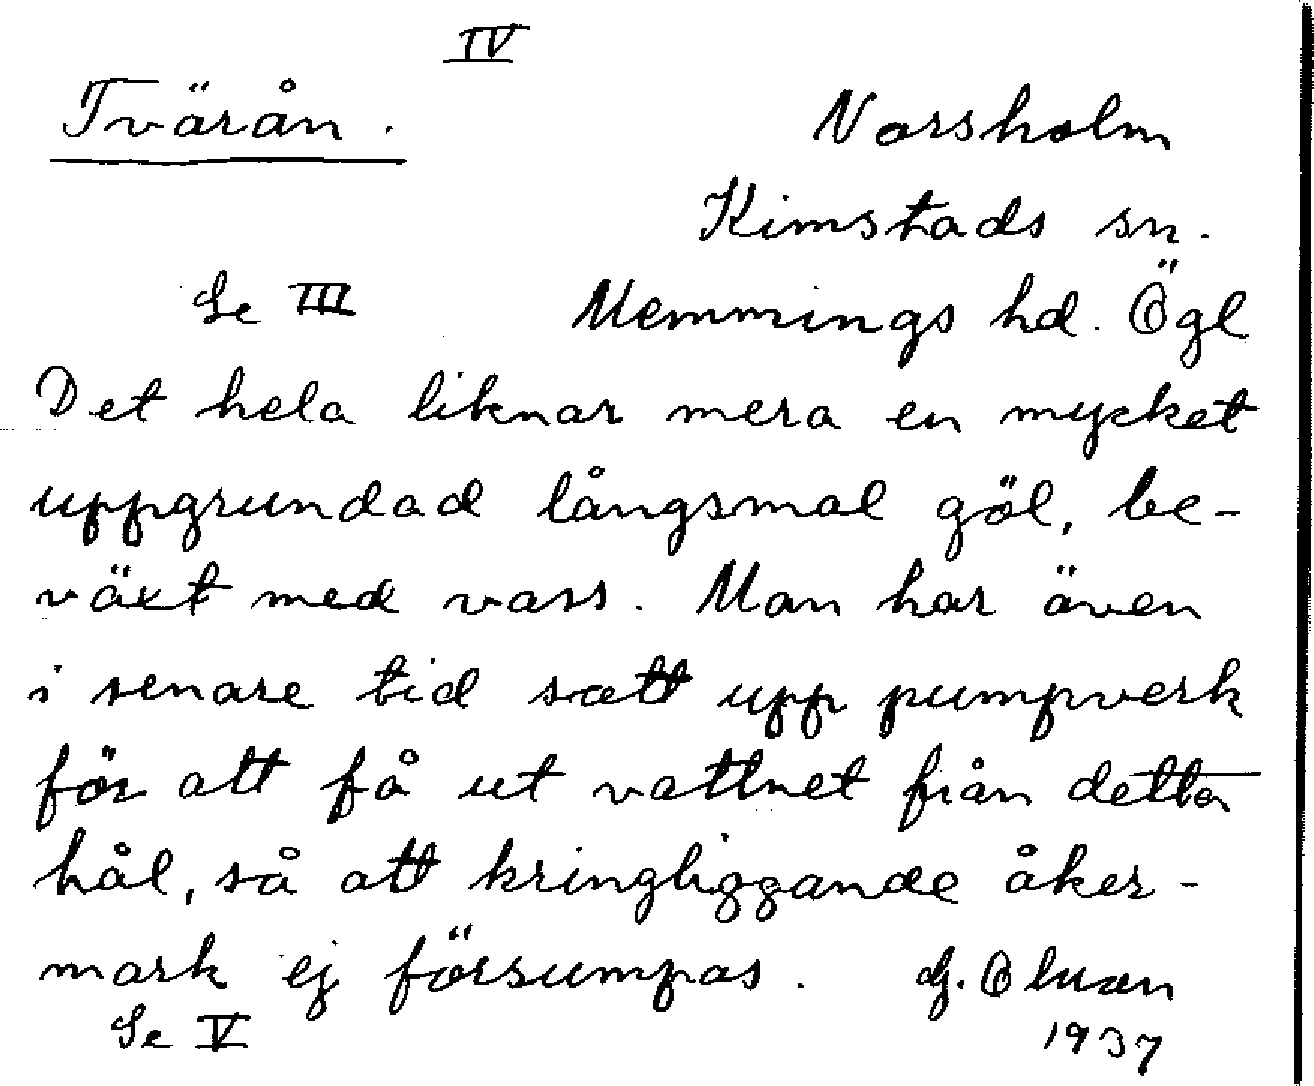 IV
Tvärån.
Norsholm
Kimstads sn.
Se III Memmings hd. Ögl
Det hela liknar mera en mycket
uppgrundad långsmal göl, be-
växt med vass. Man har även
i senare tid satt upp pumpverk
för att få ut vattnet från detta
hål, så att kringliggande åker-
mark ej försumpas.
Se V 1937